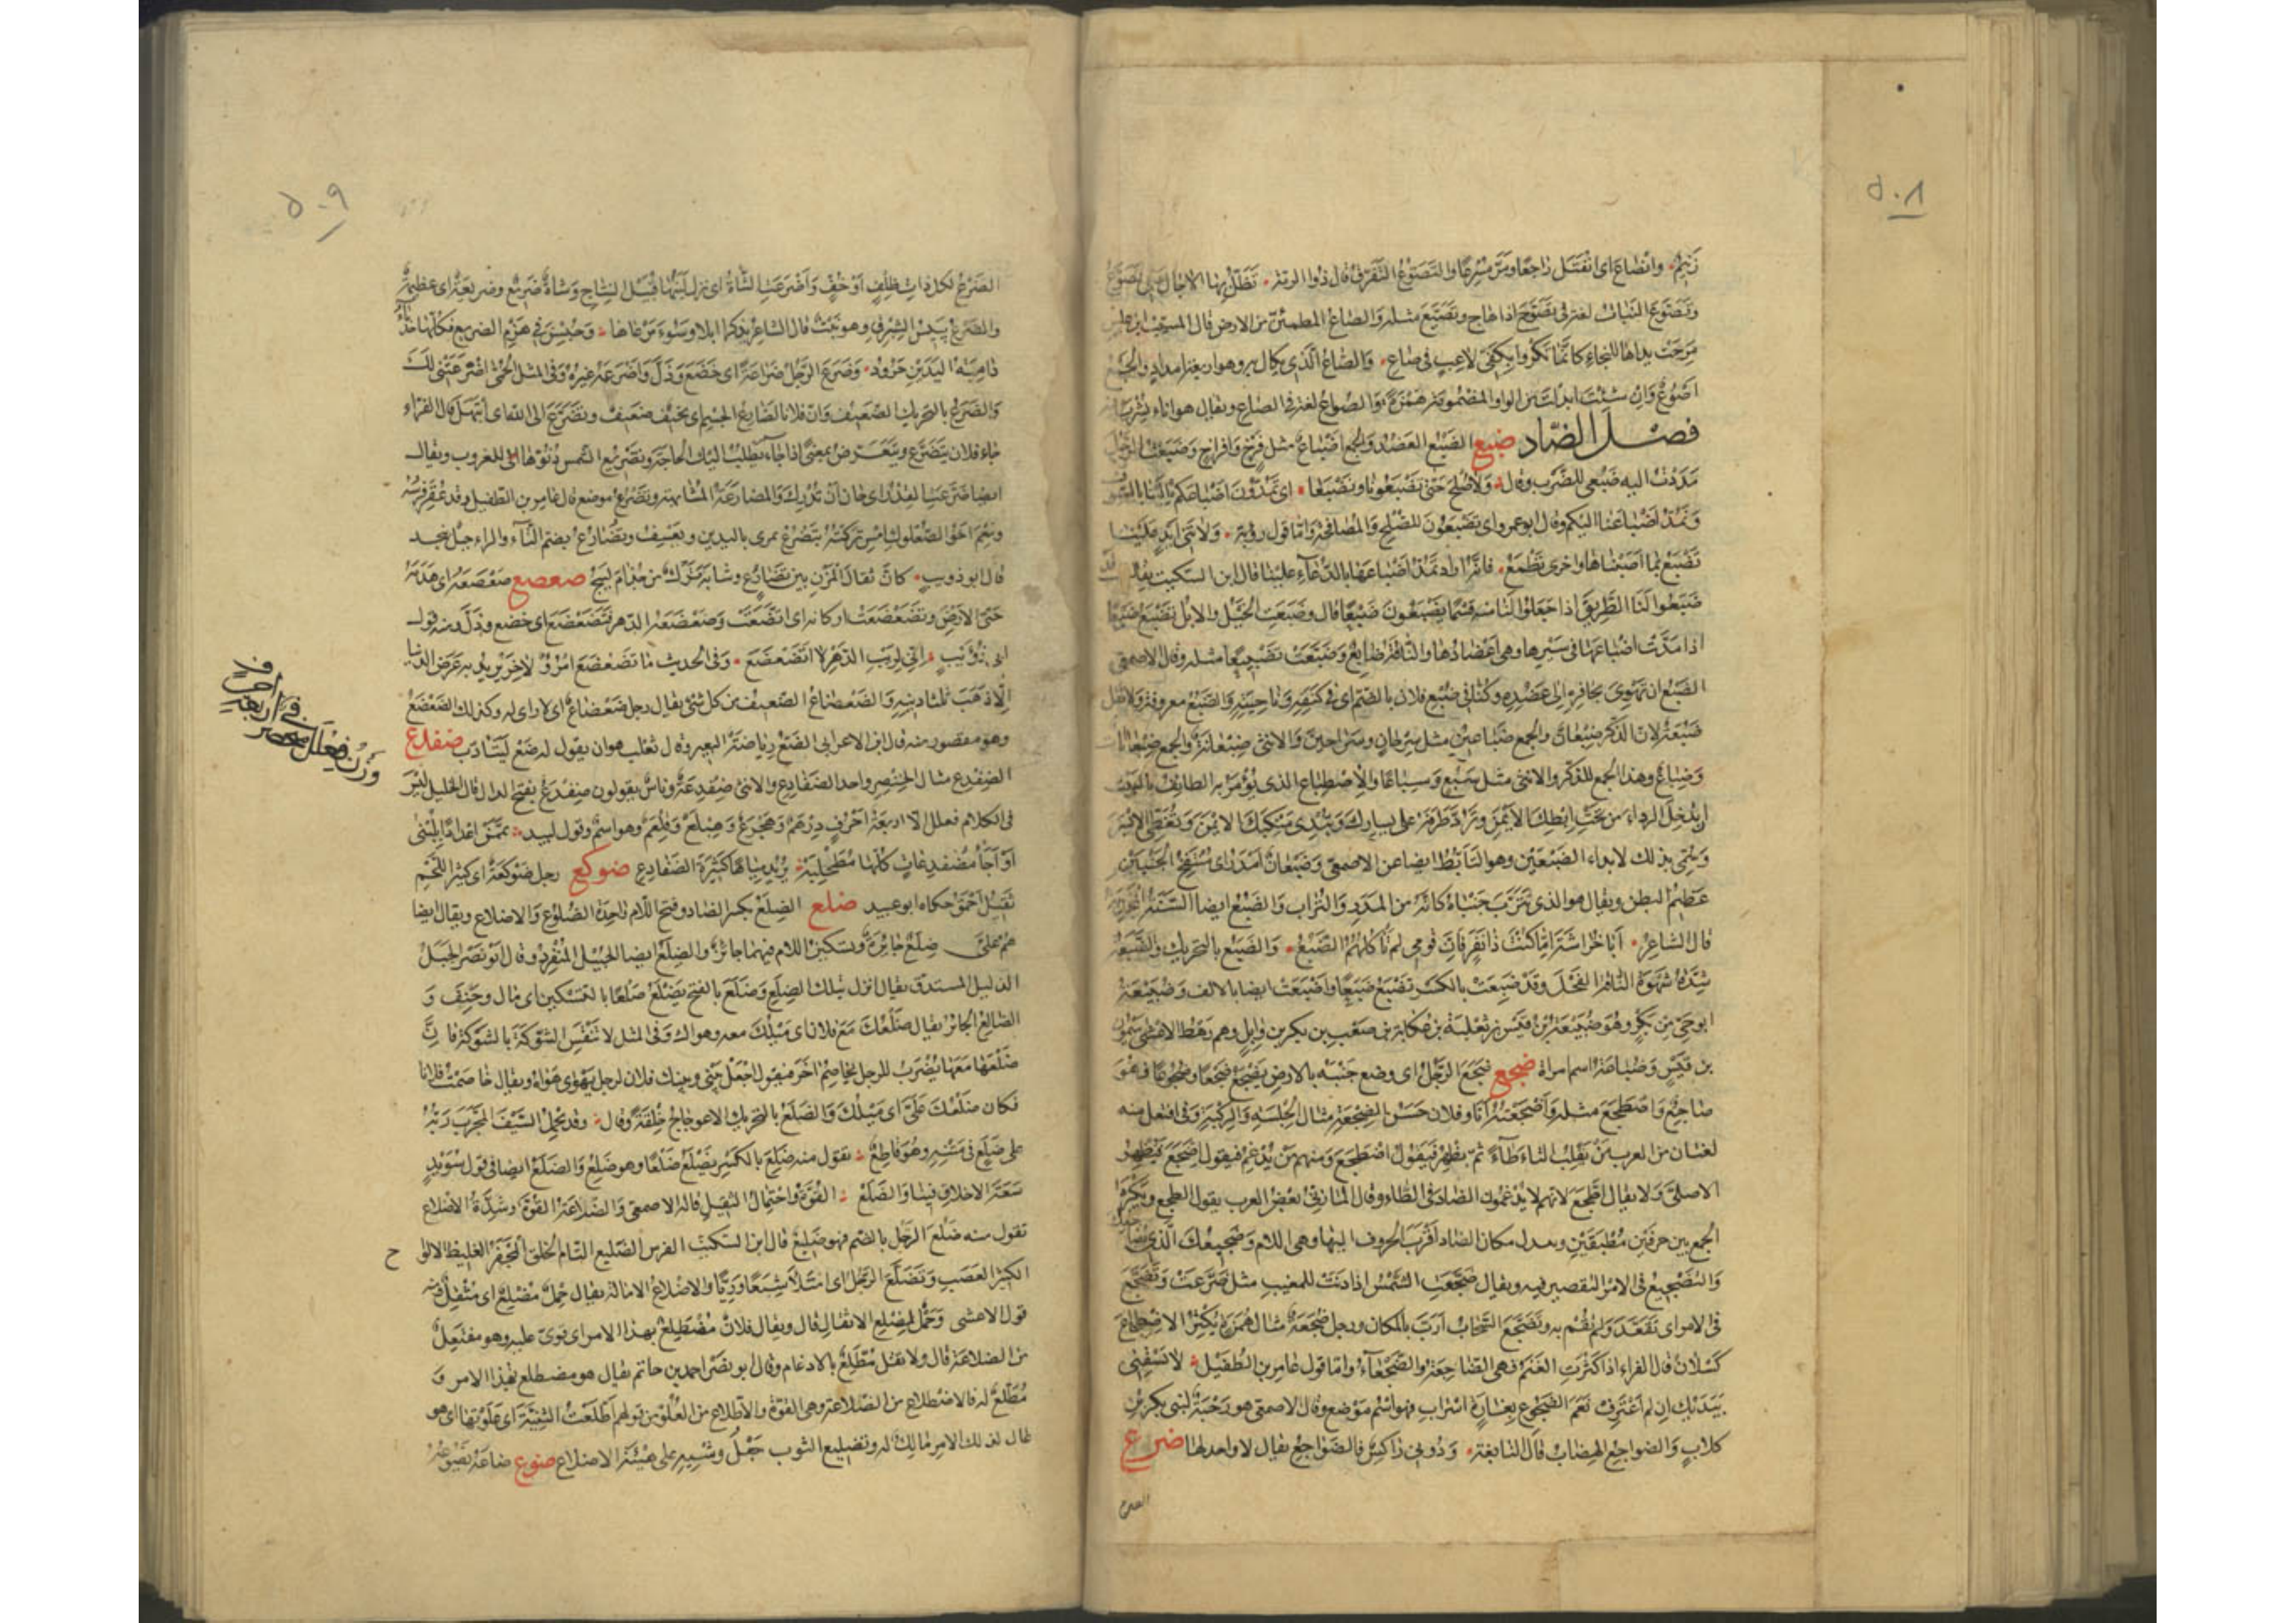 ٥٠٨
زنيم. وانضاع اى انفتل راجعا ومر مسرعا والتصوع التفرق قال ذو الرمة. تظل بها الاجال عنى تصوع
وتصوع النبات لغة فى تصوح اذا هاج وتصيع مثله والصاع المطمئن من الارض قال المسيب بن علس
مرحت يداها للنجاء كانما تكروا بكفى لاعب فى صاع. والصاع الذى يكال به وهو اربعة امداد والجمع
اصوع وان شئت ابدلت من الواو المضمومة همزة والصواع لغة فى الصاع ويقال هو اناء يشرب فيه
فصل الضاد ضبع الضبع العضد والجمع اضباع مثل فرخ وافراخ وضبعت الرجل
مددت اليه ضبعى للضرب وقال. ولا صلح حتى تضبعونا ونضبعا. اى تمدون اضباعكم الينا بالسيوف
ونمد اضباعنا اليكم وقال ابو عمرو اى تضبعون للصلح والمصافحة واما قول رؤبة. ولا تنى ايد علينا
تضبع بما اصبناها واخرى تطمع. فانه اراد تمد اضباعها بالدعاء علينا قال ابن السكيت يقال قد
ضبعوا لنا الطريق اذا جعلوا لنا منه قسما يضبعون ضبعا قال وضبعت الخيل والابل تضبع ضبعا
اذا مدت اضباعها فى سيرها وهى اعضادها والناقة ضابع وضبعت تضبيعا مثله وقال الاصمعى
الضبع ان تهوى بحافره الى عضده وكنا فى ضبع فلان بالضم اى فى كنفه وناحيته والضبع معروفة ولا تقل
ضبعة لان الذكر ضبعان والجمع ضباعين مثل سرحان وسراحين والانثى ضبعانة والجمع ضبعانات
وضباع وهذا الجمع للذكر والانثى مثل سبع وسباعا والاضطباع الذى يؤمر به الطائف بالبيت
ان تدخل الرداء من تحت ابطك الايمن وترد طرفه على يسارك وتبدى منكبك الايمن وتغطى الايسر
وسمى بذلك لابداء الضبعين وهو التأبط ايضا عن الاصمعى وضبعان امدر اى منتفخ الجنبين
عظيم البطن ويقال هو الذى تترب جنباه كانه من المدر والتراب والضبع ايضا السنة المجدبة
قال الشاعر. ابا خراشة اما كنت ذا نفر فان قومى لم تأكلهم الضبع. والضبع بالتحريك والضبعة
شدة شهوة الناقة الفحل وقد ضبعت بالكسر تضبع ضبعا واضبعت ايضا بالالف وضبيعة
ابو حى من بكر وهو ضبيعة بن قيس بن ثعلبة بن عكابة بن صعب بن بكر بن وائل وهم رهط الاعشى ميمون
بن قيس وضباعة اسم امراة ضجع ضجع الرجل اى وضع جنبه بالارض يضجع ضجعا وضجوعا فهو
ضاجع واضطجع مثله واضجعته انا وفلان حسن الضجعة مثال الجلسة والركبة وفى افتعل منه
لغتان من العرب من يقلب التاء طاء ثم يظهر فيقول اضطجع ومنهم من يدغم فيقول اضجع فيظهر
الاصلى ولا يقال اطجع لانهم لا يدغمون الضاد فى الطاء وقال المازنى بعض العرب يقول الطجع ويكره
الجمع بين حرفين مطبقين ويبدل مكان الضاد اقرب الحروف اليها وهى اللام وضجيعك الذى يضاجعك
والتضجيع فى الامر التقصير فيه ويقال ضجعت الشمس اذا دنت للمغيب مثل ضرعت وتضجع
فى الامر اى تقعد ولم يقم به وتضجع السحاب ارب بالمكان ورجل ضجعة مثال همزة يكثر الاضطجاع
كسلان قال الفراء اذا كثرت الغنم فهى الضاجعة والضجعاء واما قول عامر بن الطفيل. لا تسقنى
بيديك ان لم اغترف نعم الضجوع بغارة اسراب فهو اسم موضع وقال الاصمعى هو رحبة لبنى بكر بن
كلاب والضواجع الهضاب قال النابغة. ودونى راكس فالضواجع يقال لا واحد لها ضرع
الضرع
٥٠٩
الضرع لكل ذات ظلف او خف واضرعت الشاة اى نزل لبنها قبيل النتاج وشاة ضريع وضريعة اى عظيمة
والضريع يبيس الشبرق وهو نبت قال الشاعر يذكر ابلا وسوء مرعاها. وحبسن فى هزم الضريع فكلها حدباء
دامية اليدين حرود. وضرع الرجل ضراعة اى خضع وذل واضرعه غيره وفى المثل الحمى اضرعتنى لك
والضرع بالتحريك الضعيف وان فلانا لضارع الجسم اى نحيف ضعيف وتضرع الى الله اى ابتهل قال الفراء
جاء فلان يتضرع ويتعرض بمعنى اذا جاء يطلب اليك الحاجة وتضريع الشمس دنوها للغروب ويقال
ايضا ضرعت القدر اى حان ان تدرك والمضارعة المشابهة وتضرع موضع قال عامر بن الطفيل وقد عقر فرسه
ونعم اخو الصعلوك امس تركته بتضرع يمرى باليدين ويعسف وتضارع بضم التاء والراء جبل بنجد
قال ابو ذويب. كان ثقال المزن بين تضارع وشابة برك من جذام لبيج ضعضع ضعضعه اى هدمه
حتى الارض وتضعضعت اركانه اى اتضعت وضعضعه الدهر فتضعضع اى خضع وذل ومنه قول
ابى ذؤيب. انى لريب الدهر لا اتضعضع. وفى الحديث ما تضعضع امرؤ لاخر يريد به عرض الدنيا
الا ذهب ثلثا دينه والضعضاع الضعيف من كل شئ يقال رجل ضعضاع اى لا راى له وكذلك الضعضع
وهو مقصور منه قال ابن الاعرابى الضغ رياضة البعير وقال ثعلب هو ان يقول له ضغ ليتادب ضفدع
الضفدع مثال الخنصر واحد الضفادع والانثى ضفدعة وناس يقولون ضفدع بفتح الدال قال الخليل ليس
فى الكلام فعلل الا اربعة احرف درهم وهجرع وهبلع وقلعم وهو اسم وقول لبيد
او آجا مضفدعات كلها مطحلبة. يريد مياها كثيرة الضفادع ضوكع رجل ضوكعة اى كثير اللحم
ثقيل احمق حكاه ابو عبيد ضلع الضلع بكسر الضاد وفتح اللام واحدة الضلوع والاضلاع ويقال ايضا
هم على ضلع جائرة وتسكين اللام فيهما جائز والضلع ايضا الجبيل المنفرد وقال ابو نصر الجبل
الذليل المستدق يقال انزل بتلك الضلع وضلع بالفتح يضلع ضلعا بالتسكين اى مال وجنف و
الضالع الجائر يقال ضلعك مع فلان اى ميلك معه وهواك وفى المثل لا تنقش الشوكة بالشوكة فان
ضلعها معها يضرب للرجل يخاصم اخر فيقول اجعل بينى وبينك فلان لرجل يهوى هواه ويقال خاصمت فلانا
فكان ضلعك على اى ميلك والضلع بالتحريك الاعوجاج خلقة وقال. وقد يحمل السيف المجرب ربه
على ضلع فى متنه وهو قاطع. تقول منه ضلع بالكسر يضلع ضلعا وهو ضلع والضلع ايضا فى قول سويد
سعة الاخلاق فينا والضلع. القوة واحتمال الثقيل قاله الاصمعى والضلاعة القوة وشدة الاضلاع
تقول منه ضلع الرجل بالضم فهو ضليع قال ابن السكيت الفرس الضليع التام الخلق المجفر الغليظ الالواح
الكثير العصب وتضلع الرجل اى امتلأ شبعا وريا والاضلاع الامالة يقال حمل مضلع اى مثقل ومنه
قول الاعشى وحمل لمضلع الاثقال قال ويقال فلان مضطلع بهذا الامر اى قوى عليه وهو مفتعل
من الضلاعة قال ولا تقل مطلع بالادغام وقال ابو نصر احمد بن حاتم يقال هو مضطلع بهذا الامر و
مطلع له فالاضطلاع من الضلاعة وهى القوة والاطلاع من العلو من قولهم اطلعت الثنية اى علوتها اى هو
عال لذلك الامر مالك له وتضليع الثوب جعل وشيه على هيئة الاضلاع ضوع ضاعه يضوعه
وزن فعلل منحصر
فى اربعة
احرف